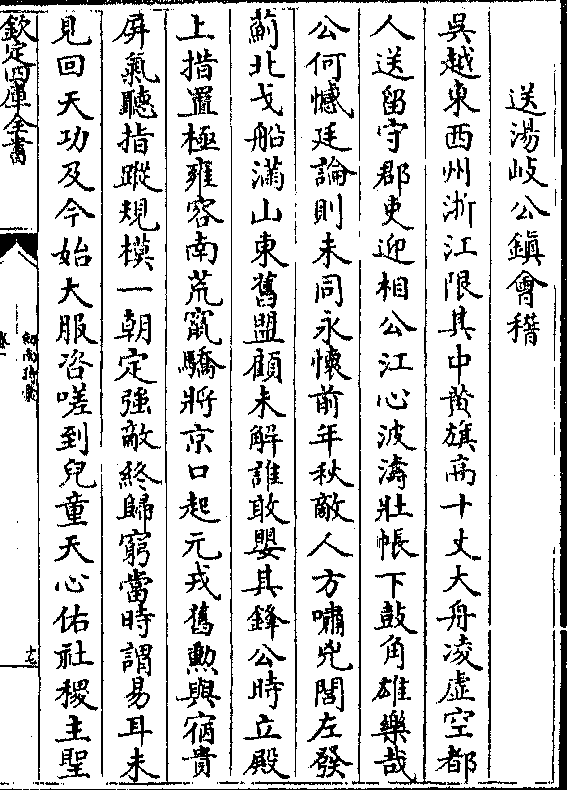 送湯岐公鎮㑹稽
吳越東西州浙江限其中黄旗高十丈大舟凌虛空都
人送留守郡吏迎相公江心波濤壯帳下鼓角雄樂哉
公何憾廷論則未同永懷前年秋敵人方嘯兇閭左發
薊北戈船滿山東舊盟顧未解誰敢嬰其鋒公時立殿
上措置極雍容南荒竄驕將京口起元戎舊勲與宿貴
屏氣聽指蹤規模一朝定強敵終歸窮當時謂易耳未
見回天功及今始大服咨嗟到兒童天心佑社稷主聖
欽定四庫全書
劍南詩槀
卷一